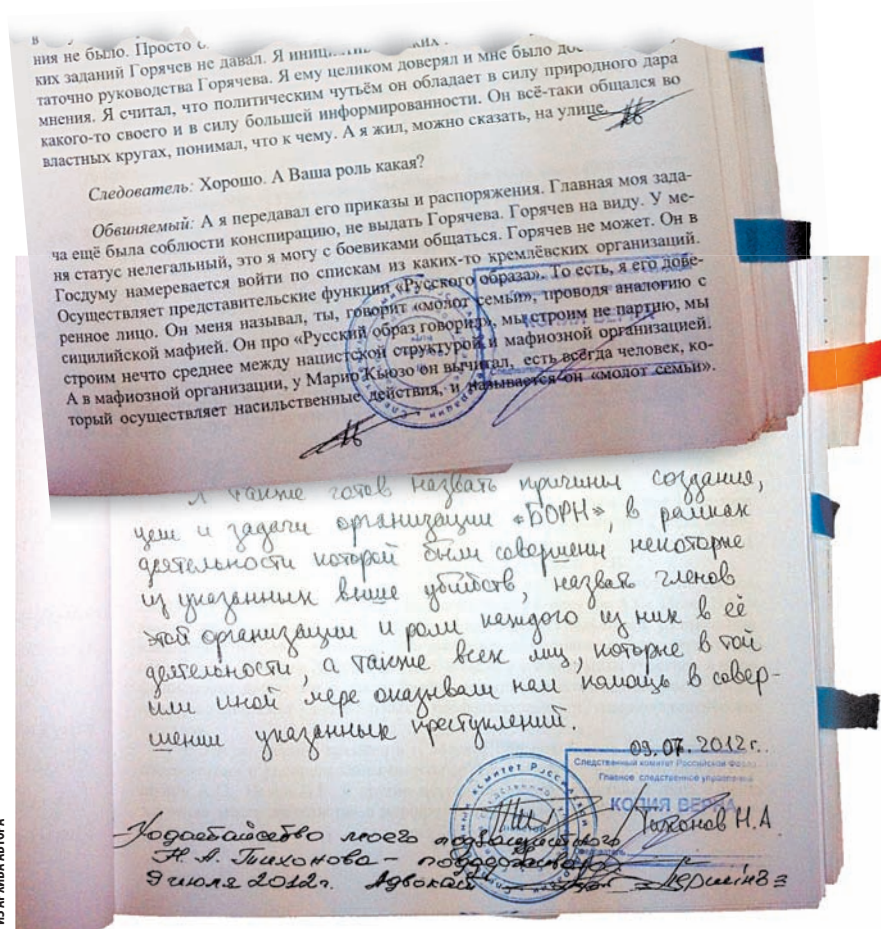 ния не было. Просто
ких заданий Горячев не давал. Я
таточно руководства Горячева. Я ему целиком доверял и мне было
мнения. Я считал, что политическим чутьём он обладает в силу природного дара
какого-то своего и в силу большей информированности. Он всё-таки общался во
властных кругах, понимал, что к чему. А я жил, можно сказать, на улице.
Следователь: Хорошо. А Ваша роль какая?
Обвиняемый: А я передавал его приказы и распоряжения. Главная моя зада-
ча ещё была соблюсти конспирацию, не выдать Горячева. Горячев на виду. У ме-
ня статус нелегальный, это я могу с боевиками общаться. Горячев не может. Он в
Госдуму намеревается войти по спискам из каких-то кремлёвских организаций.
Осуществляет представительские функции «Русского образа». То есть, я его дове-
ренное лицо. Он меня называл, ты, говорит «молот семьи», проводя аналогию с
сицилийской мафией. Он про «Русский образ говорил», мы строим не партию, мы
строим нечто среднее между нацистской структурой и мафиозной организацией.
А в мафиозной организации, у Марио Кьюзо он вычитал, есть всегда человек, ко-
торый осуществляет насильственные действия, и называется он «молот семьи».
Я также готов назвать причины создания,
цели и задачи организации «БОРН», в рамках
деятельности которой были совершены некоторые
из указанных выше убийств, назвать членов
этой организации и роли каждого из них в её
деятельности, а также всех лиц, которые в той
или иной мере оказывали нам помощь в совер-
шении указанных преступлений.
09.07.2012 г.
Следственный комитет Российской
Главное следственное управление
КОПИЯ ВЕРНА
Тихонов Н.А
Ходатайство моего подзащитного
Н. А. Тихонова – поддерживаю
9 июля 2012г. Адвокат
ИЗ АРХИВА АВТОРА